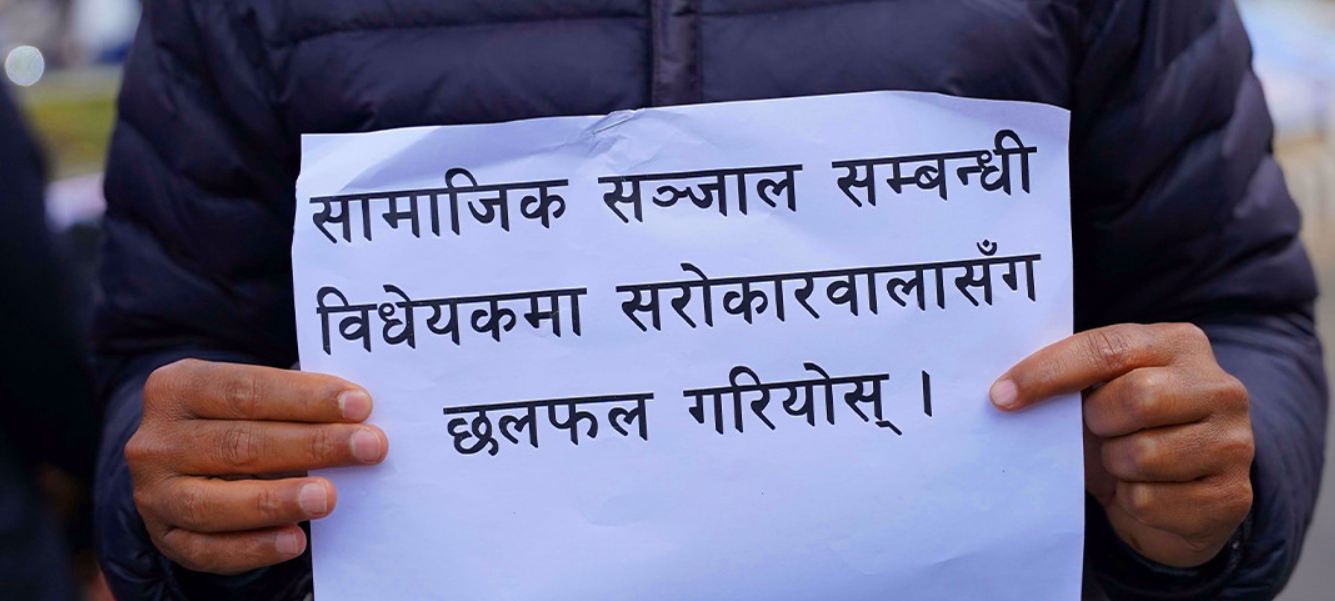 सामाजिक सञ्जाल सम्बन्धी
विधेयकमा सरोकारवालासँग
छलफल गरियोस् ।